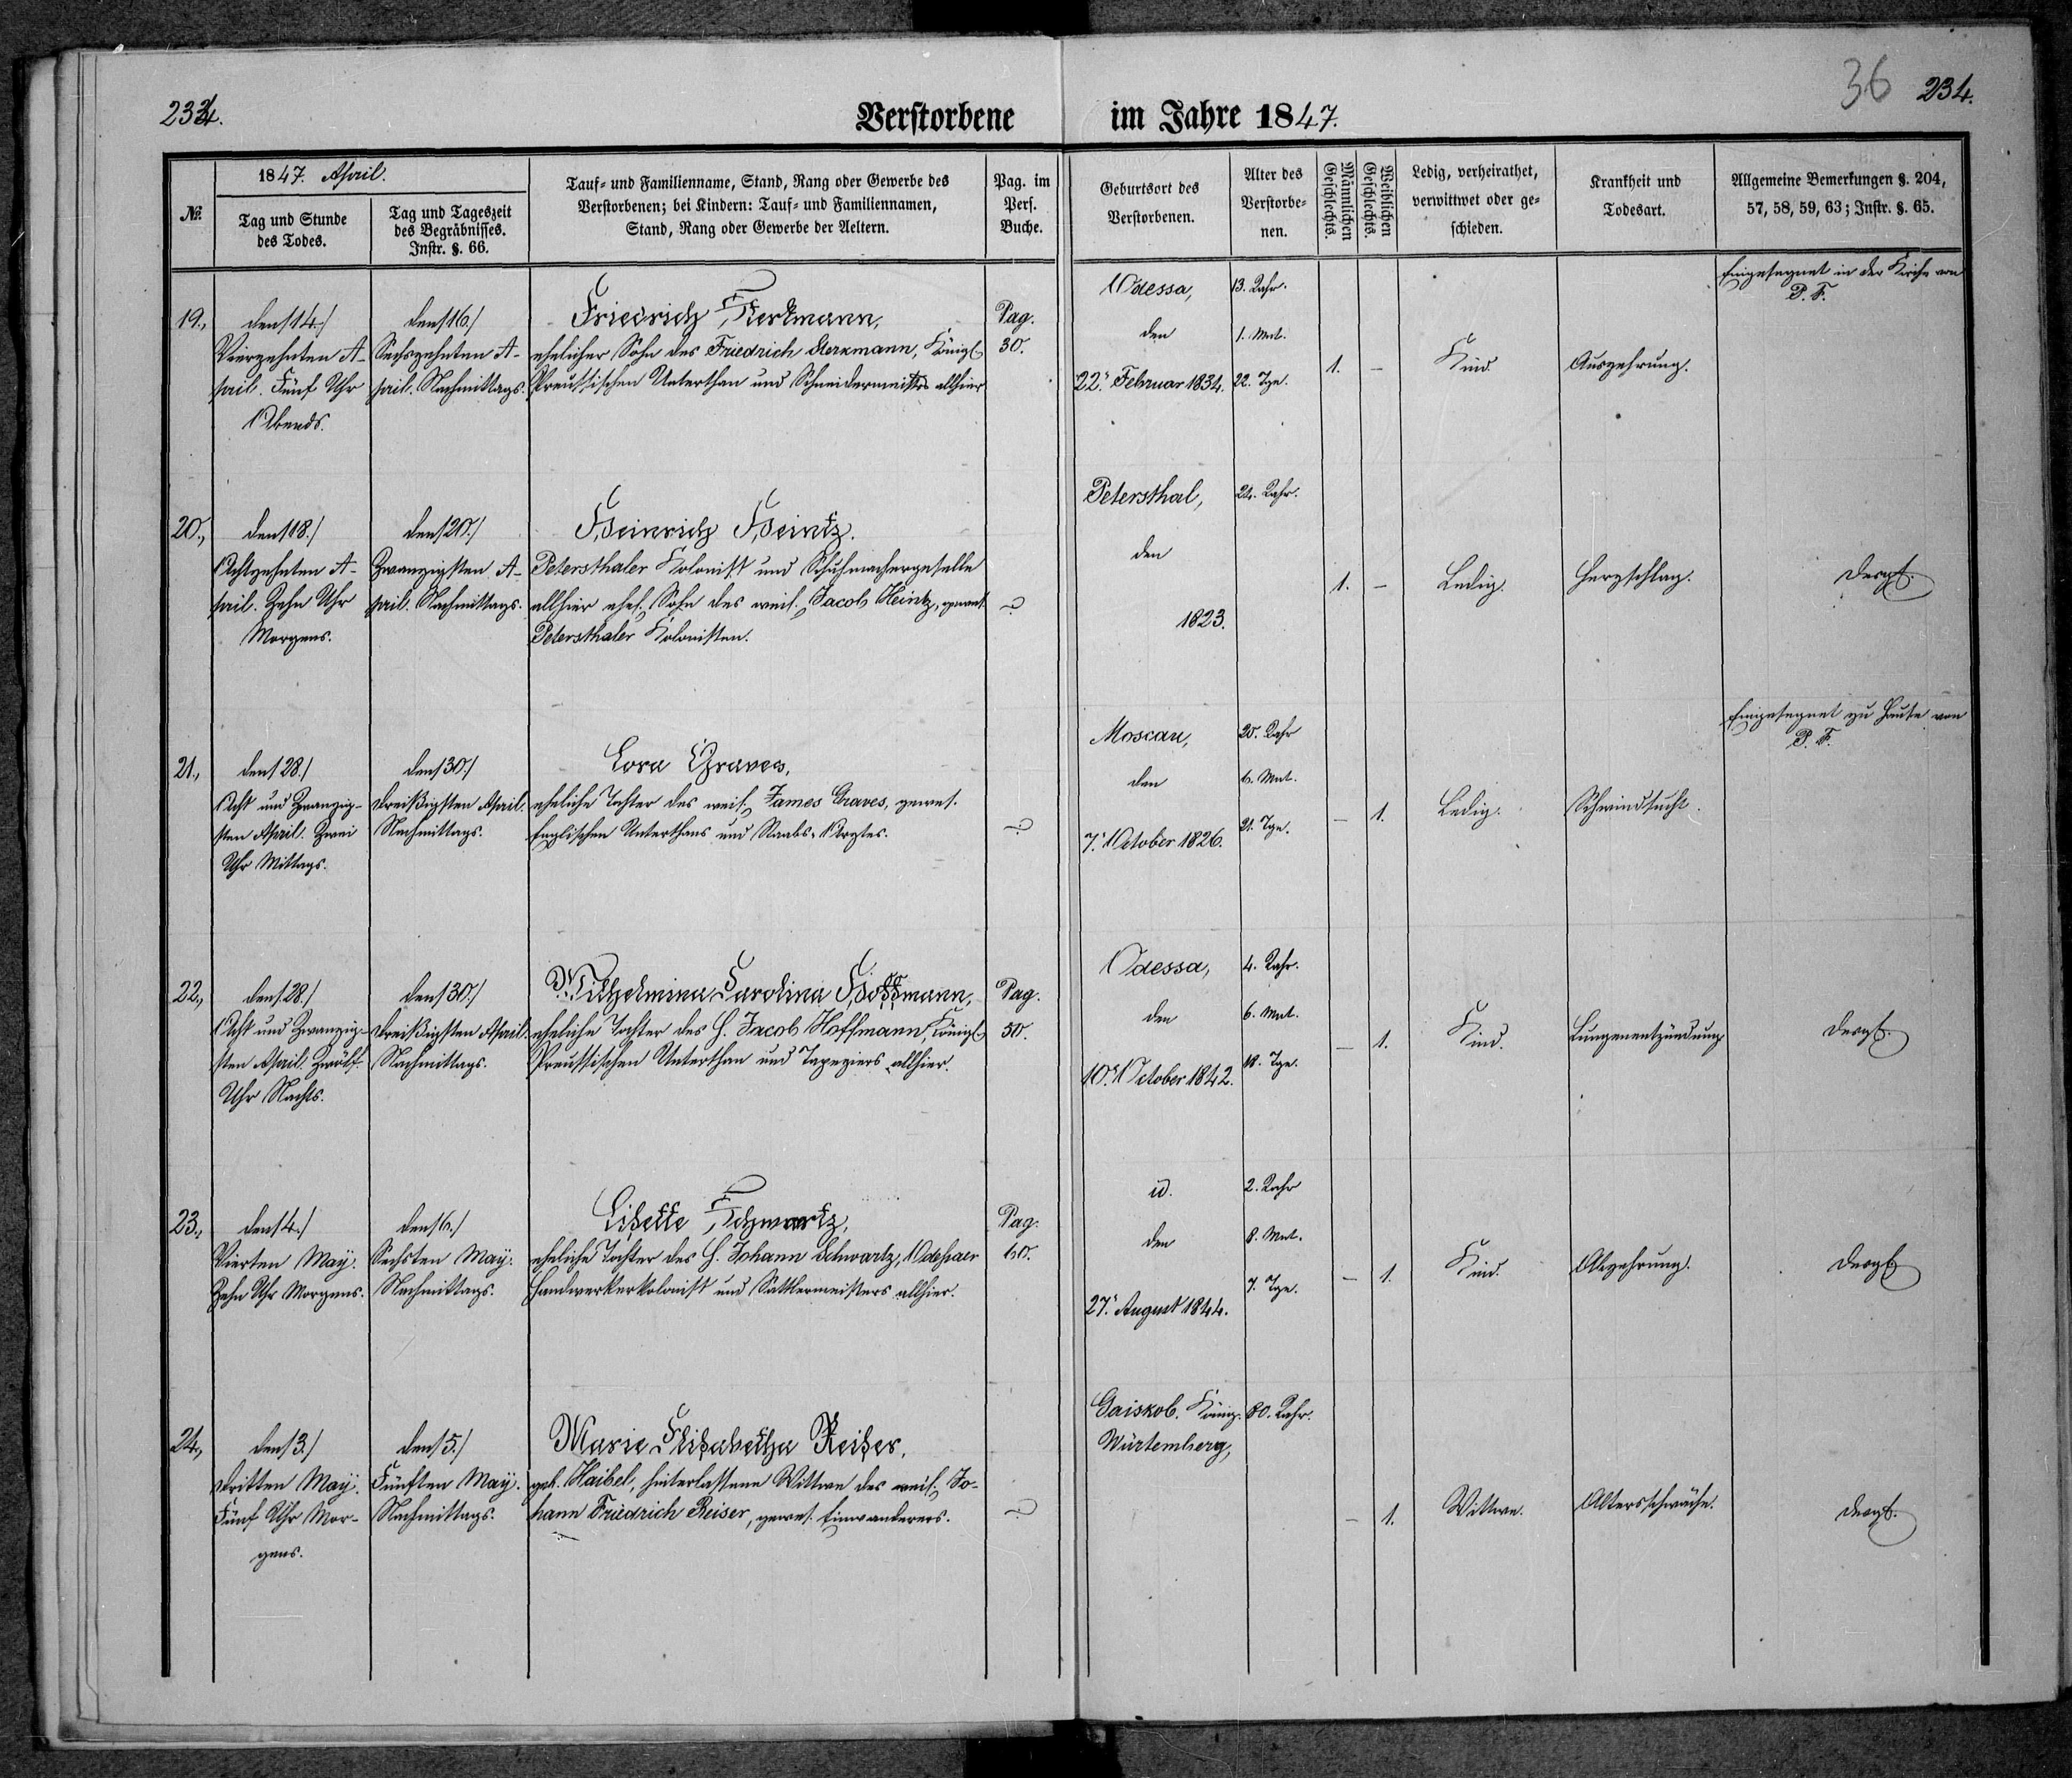 234.
Verstorbene im Jahre 1847.
36 234.
№.
1847. April.
Tag und Stunde
des Todes.
Tag und Tageszeit
des Begräbnisses.
Instr. §. 66.
Tauf- und Familienname, Stand, Rang oder Gewerbe des
Verstorbenen; bei Kindern: Tauf- und Familiennamen,
Stand, Rang oder Gewerbe der Aeltern.
Pag. im
Pers.
Buche.
Geburtsort des
Verstorbenen.
Alter des
Verstorbe-
nen.
Männlichen
Geschlechts.
Weiblichen
Geschlechts.
Ledig, verheirathet,
verwittwet oder ge-
schieden.
Krankheit und
Todesart.
Allgemeine Bemerkungen §. 204,
57, 58, 59, 63; Instr. §. 65.
19.,
den 14./
Vierzehnten A-
pril. Fünf Uhr
Abends.
den 16./
Sechszehnten A-
pril. Nachmittags.
Friedrich Sterkmann,
ehelicher Sohn des Friedrich Sterkmann, Königl.
Preussischen Unterthan und Schneidermeisters allhier
Pag.
30.
Odessa,
den
22. Februar 1834.
13. Jahr.
1. Mnt.
22. Tge.
1.
–
Kind.
Auszehrung.
Eingesegnet in der Kirche von
P. F.
20.,
den 18./
Achtzehnten A-
pril. Zehn Uhr
Morgens.
den 20./
Zwanzigsten A-
pril. Nachmittags.
Heinrich Heintz.
Petersthaler Kolonist und Schuhmachergeselle
allhier ehel. Sohn des weil. Jacob Heintz, gewes.
Petersthaler Kolonisten.
?
Petersthal,
den
1823.
24. Jahr.
1.
–
Ledig.
Herzschlag.
desgl.
21.,
den 28./
Acht und Zwanzig-
sten April. Zwei
Uhr Mittags.
den 30./
Dreißigsten April.
Nachmittags.
Cora Graves,
eheliche Tochter des weil. James Graves, gewes.
Englischen Unterthans und Staabs-Arztes.
?
Moscau,
den
7. October 1826.
20. Jahr
6. Mnt.
21. Tge.
–
1.
Ledig.
Schwindsucht.
Eingesegnet zu Hause von
P. F.
22.,
den 28./
Acht und Zwanzig-
sten April. Zwölf
Uhr Nachts.
den 30./
Dreißigsten April.
Nachmittags.
Wilhelmina Carolina Hoffmann,
eheliche Tochter des H. Jacob Hoffmann, Königl.
Preussischen Unterthan und Tapeziers allhier.
Pag.
50.
Odessa,
den
10. October 1842.
4. Jahr.
6. Mnt.
18. Tge.
–
1.
Kind.
Lungenentzündung
desgl.
23.,
den 4./
Vierten May.
Zehn Uhr Morgens.
den 6./
Sechsten May.
Nachmittags.
Lisette Schwartz,
eheliche Tochter des H. Johann Schwartz, Odessaer
Handwerkerkolonist und Sattlermeisters allhier.
Pag.
60.
id.
den
27. August 1844.
2. Jahr
8. Mnt.
7. Tge.
–
1.
Kind.
Abzehrung.
desgl.
24.,
den 3./
Dritten May.
Fünf Uhr Mor-
gens.
den 5./
Fünften May.
Nachmittags.
Marie Elisabetha Reiser,
geb. Haibel, hinterlassene Wittwe des weil. Jo-
hann Friedrich Reiser, gewes. Einwanderers.
?
Gaiskob. König.
Würtemberg,
80. Jahr.
–
1.
Wittwe.
Altersschwäche.
desgl.